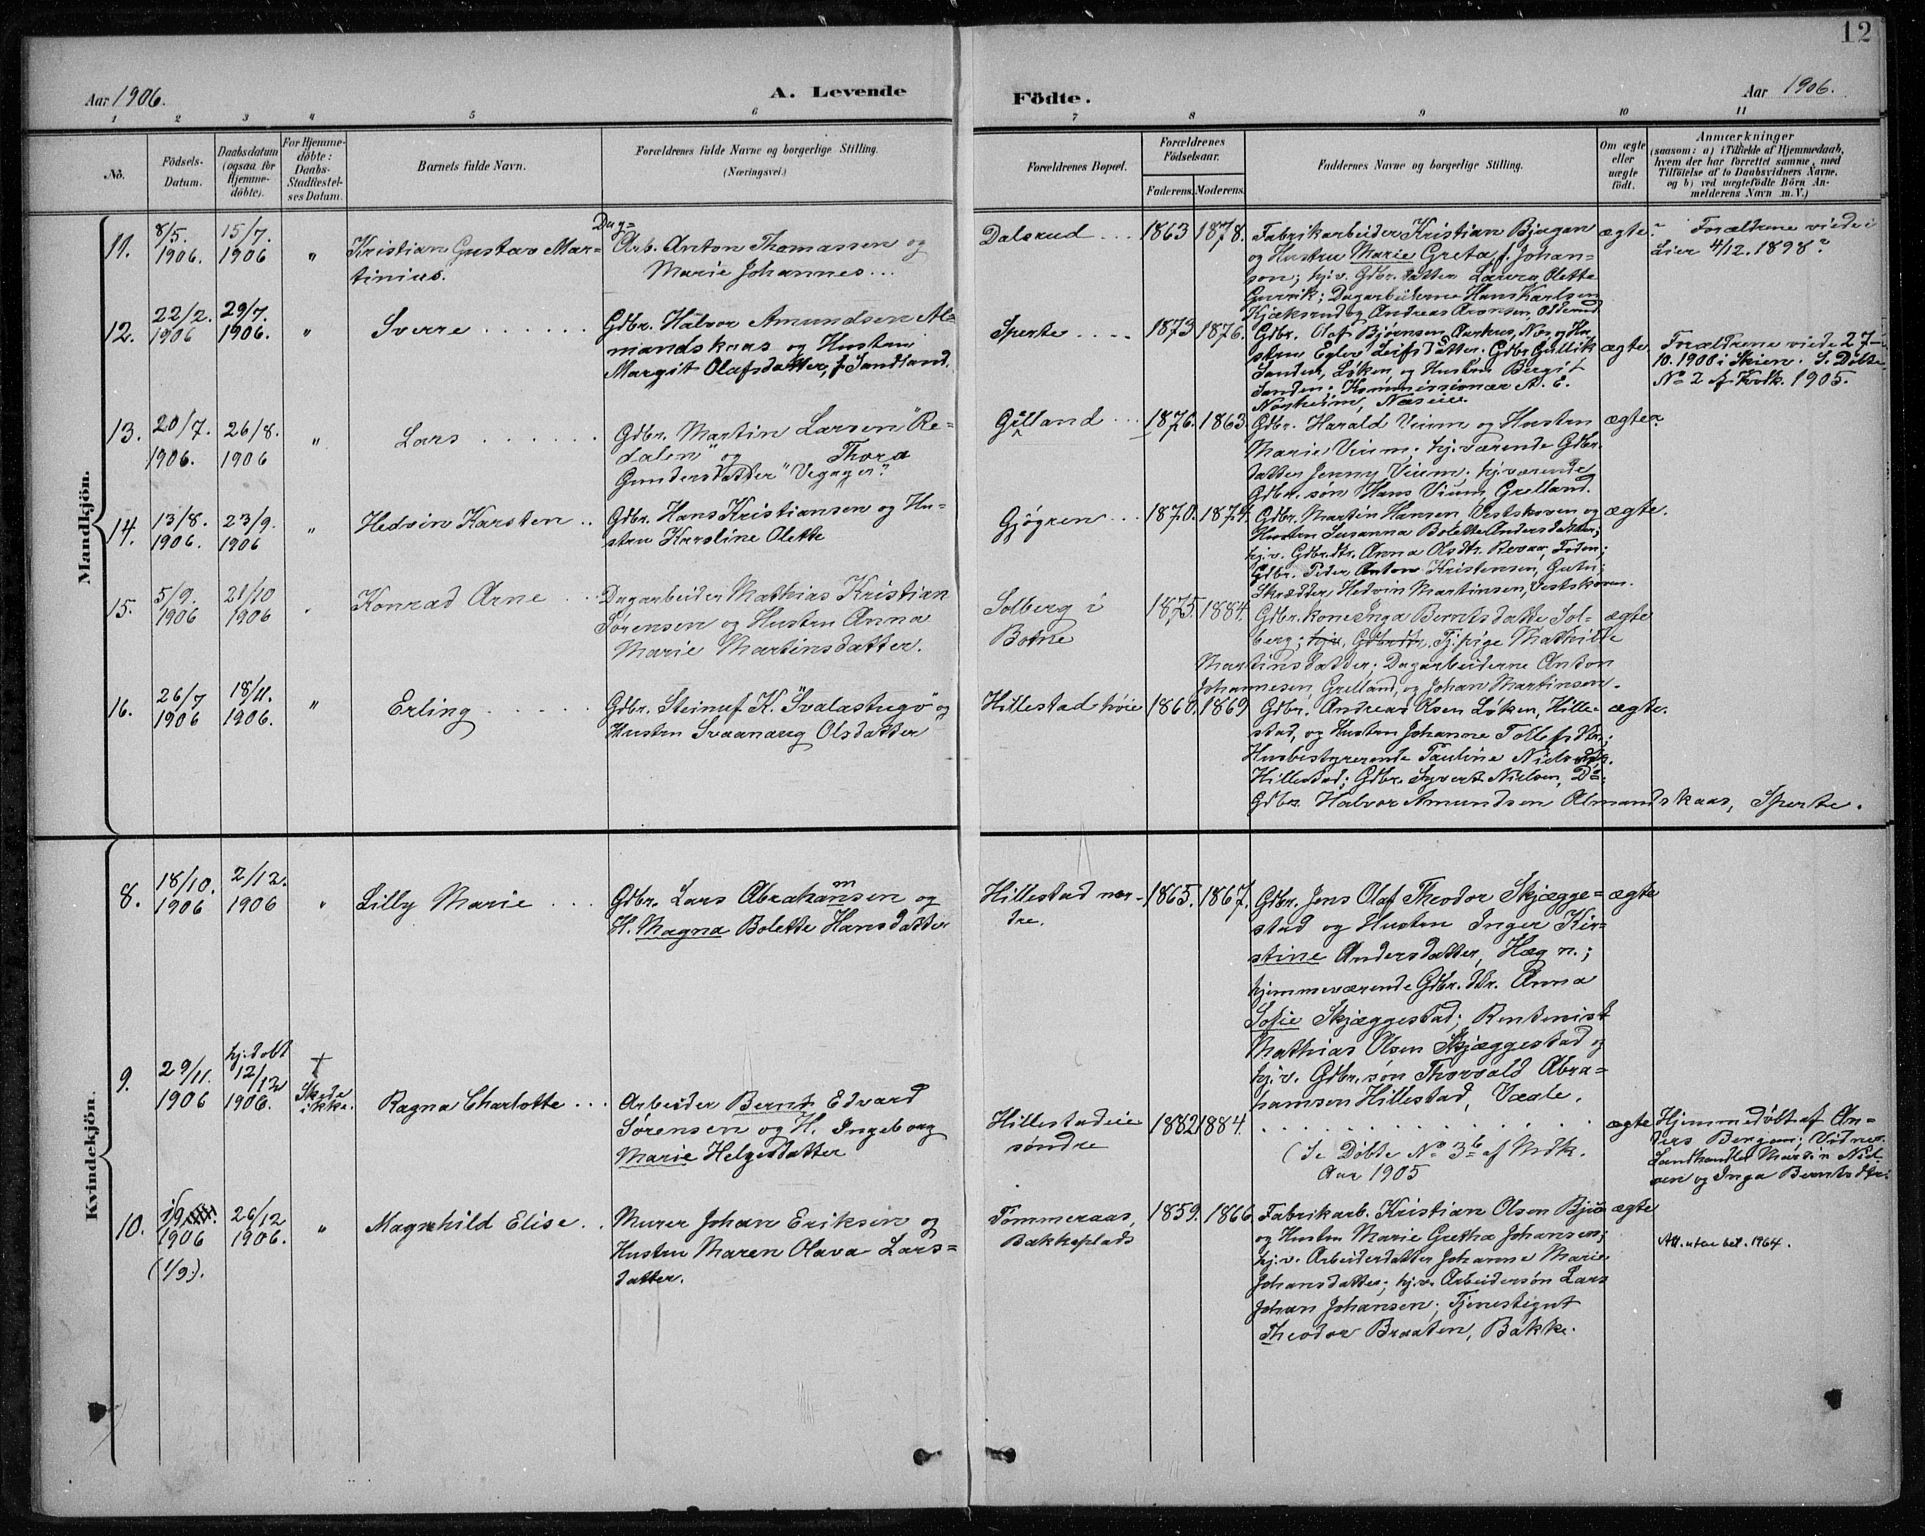 12
Aar 1906.
A. Levende
Födte.
Aar 1906.
1 2 3 4 5 6 7 8 9 10 11
No.
Födsels-
Datum.
Daabsdatum
(ogsaa for
Hjemme-
döbte).
For Hjemme-
döbte:
Daabs-
Stadfæstel-
ses Datum.
Barnets fulde Navn.
Forældrenes fulde Navne og borgerlige Stilling.
(Næringsvei.)
Forældrenes Bopæl.
Forældrenes
Födselsaar.
Faderens. Moderens.
Faddernes Navne og borgerlige Stilling.
Om ægte
eller
uægte
födt.
Anmærkninger
(saasom: a) i Tilfælde af Hjemmedaab,
hvem der har forrettet samme, med
Tilföielse af to Daabsvidners Navne,
og b) ved uegtefödte Börn An-
melderens Navn m. V.)
Mandkjön.
11.
8/5.
1906.
15/7.
1906
"
Kristian Gustav Mar-
tinius.
Dag-
Arb. Anton Thomassen og
Marie Johannes...
Dalsrud ....
1863 1878.
Fabrikarbeider Kristian Bjugan
og Hustru Marie Greta f. Johan-
son; hj.v. Gdbr. datter Laura Olette
Dagarbeiderne Hans Karlsen
Kjæksrud og Andreas Aronsen, Olderud
ægte.
Forældrene viede i
Lier 4/12. 1898.
12.
22/2.
1906
29/7.
1906.
"
Sverre ......
Gdbr. Halvor Amundsen Al-
mandskaas og Hustru
Margit Olafsdatter, f. Sandland.
Sperte ....
1873 1876.
Gdbr. Olaf Bjørnsen Aarhus, Nor og Hu-
stru Egler Leifsdatter; Gdbr. Gullik
Sanden, Løken, og Hustru Bergit
Sanden; Kommissionær A. E.
Norheim, Næseie.
ægte
Forældrene viede 27-
10. 1900 i Skien. S. Døbte
No 2 af Kvdk. 1905.
13.
20/7.
1906.
26/8.
1906
"
Lars ......
Gdbr. Martin Larsen "Re-
dalen" og Thora
Gundersdatter "Vegger".
Grelland ...
1876. 1863
Gdbr. Harald Vium og Hustru
Marie Vium; hj.værende Gdbr.
datter Jenny Vium; hj.værende
Gdbr. søn Hans Vium, Grelland.
ægte
14.
13/8.
1906.
23/9.
1906
"
Hedvin Karsten ..
Gdbr. Hans Kristiansen og Hu-
stru Karoline Olette
Gjøgren ...
1870. 1874.
Gdbr. Martin Hansen Vestskoven og
Hustru Susanna Bolette Andersdatter;
hj.v. Gdbr.dtr. Anna Olsdtr. Revaa, Foden;
Gdbr. Peder Anton Kristensen,
Skrædder Hedvin Martinsen, Vestskoven.
ægte.
15.
5/9.
1906
21/10
1906
"
Konrad Arne ...
Dagarbeider Mathias Kristian
Sørensen og Hustru Anna
Marie Martinsdatter.
Solberg i
Botne
1875. 1884.
Gdbr.kone Inga Berntsdatte Sol-
berg; hjv. Gdbrdtr. Tj.pige Mathilde
Martinsdatter; Dagarbeiderne Anton
Johannesen, Grelland, og Johan Martinsen.
ægte
16.
26/7
1906
18/11.
1906.
"
Erling .....
Gdbr. Steinuf K. "Svalastugo" og
Hustru Svaanaug Olsdatter
Hillestad høie
1860. 1869
Gdbr. Andreas Olsen Løken, Hille-
stad, og Hustru Johanne Tollefsdtr.;
Husbestyrerende Pauline Nielsen,
Hillestad; Gdbr. Syvert Nielsen, Do;
Gdbr. Halvor Amundsen Almandskaas, Sperte.
ægte.
Kvindekjön.
8.
18/10.
1906
2/12.
1906
"
Lilly Marie ...
Gdbr. Lars Abrahamsen og
H. Magna Bolette Hansdatter
Hillestad nor-
dre.
1865. 1867.
Gdbr. Jens Olaf Theodor Skjægge-
stad og Hustru Inger Kir-
stine Andersdatter, Hæg n.;
hjemmeværende Gdbr. dtr. Anna
Sofie Skjæggestad; Rentenist
Mathias Olsen Skjæggestad og
hj.v. Gdbr. søn Thorvald Abra-
hamsen Hillestad, Vegle.
ægte
9.
29/11.
1906
hj.døbt
12/12
1906.
+
Skede
ikke.
Ragna Charlotte ...
Arbeider Bernt Edvard
Sørensen og H. Ingeborg
Marie Helgesdatter
Hillestadeie
søndre
1882 1884.
(Se Døbte No 3b af Mdk.
Aar 1905
ægte
Hjemmedøbt af An-
ders Bergan; Vidner
Landhandler Martin Niel-
sen og Inga Berntsdtr.
10.
19
1906
(1/9.).
26/12
1906.
"
Magnhild Elise ..
Murer Johan Eriksen og
Hustru Maren Olava Lars-
datter.
Tømmeraas,
Bakkeplads
1859. 1866
Fabrikarb. Kristian Olsen Bju
og Hustru Marie Gretha Johansen;
hj.v. Arbeiderdatter Johanne Marie
Johansdatter; hj.v. Arbeidersøn Lars
Johan Johansen; Tjenestegut
Theodor Braaten, Bakke.
ægte
Att. uten bet. 1964.